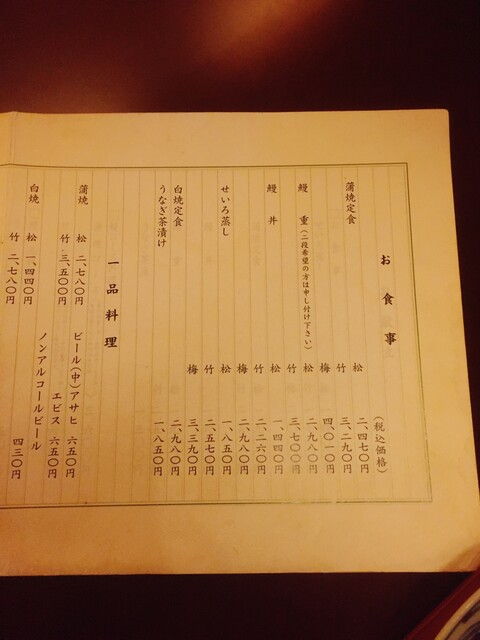 お食事
(税込価格)
蒲焼定食 松 二、四七〇円
竹 三、二九〇円
梅 四、〇一〇円
鰻重(二段希望の方は申し付け下さい) 松 二、九八〇円
竹 三、七〇〇円
鰻丼 松 一、四四〇円
竹 二、二六〇円
梅 二、九八〇円
せいろ蒸し 松 一、八五〇円
竹 二、五七〇円
梅 三、三九〇円
白焼定食 二、九八〇円
うなぎ茶漬け 一、八五〇円
一品料理
蒲焼 松 二、七八〇円
竹 三、五〇〇円
白焼 松 一、四四〇円
竹 二、七八〇円
ビール(中)アサヒ 六五〇円
エビス 六五〇円
ノンアルコールビール
四三〇円